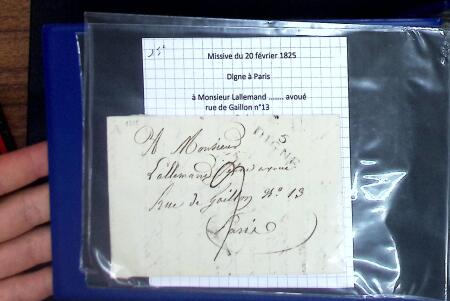 Missive du 20 février 1825
Digne à Paris
à Monsieur Lallemand ........ avoué
rue de Gaillon n°13
5
DIGNE
A Monsieur
Lallemand avoué
Rue de Gaillon N.o 13
Paris